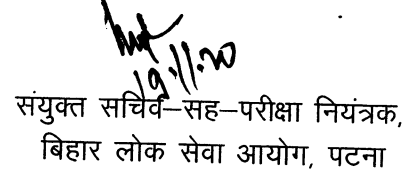 19.11.20
संयुक्त सचिव–सह–परीक्षा नियंत्रक,
बिहार लोक सेवा आयोग, पटना